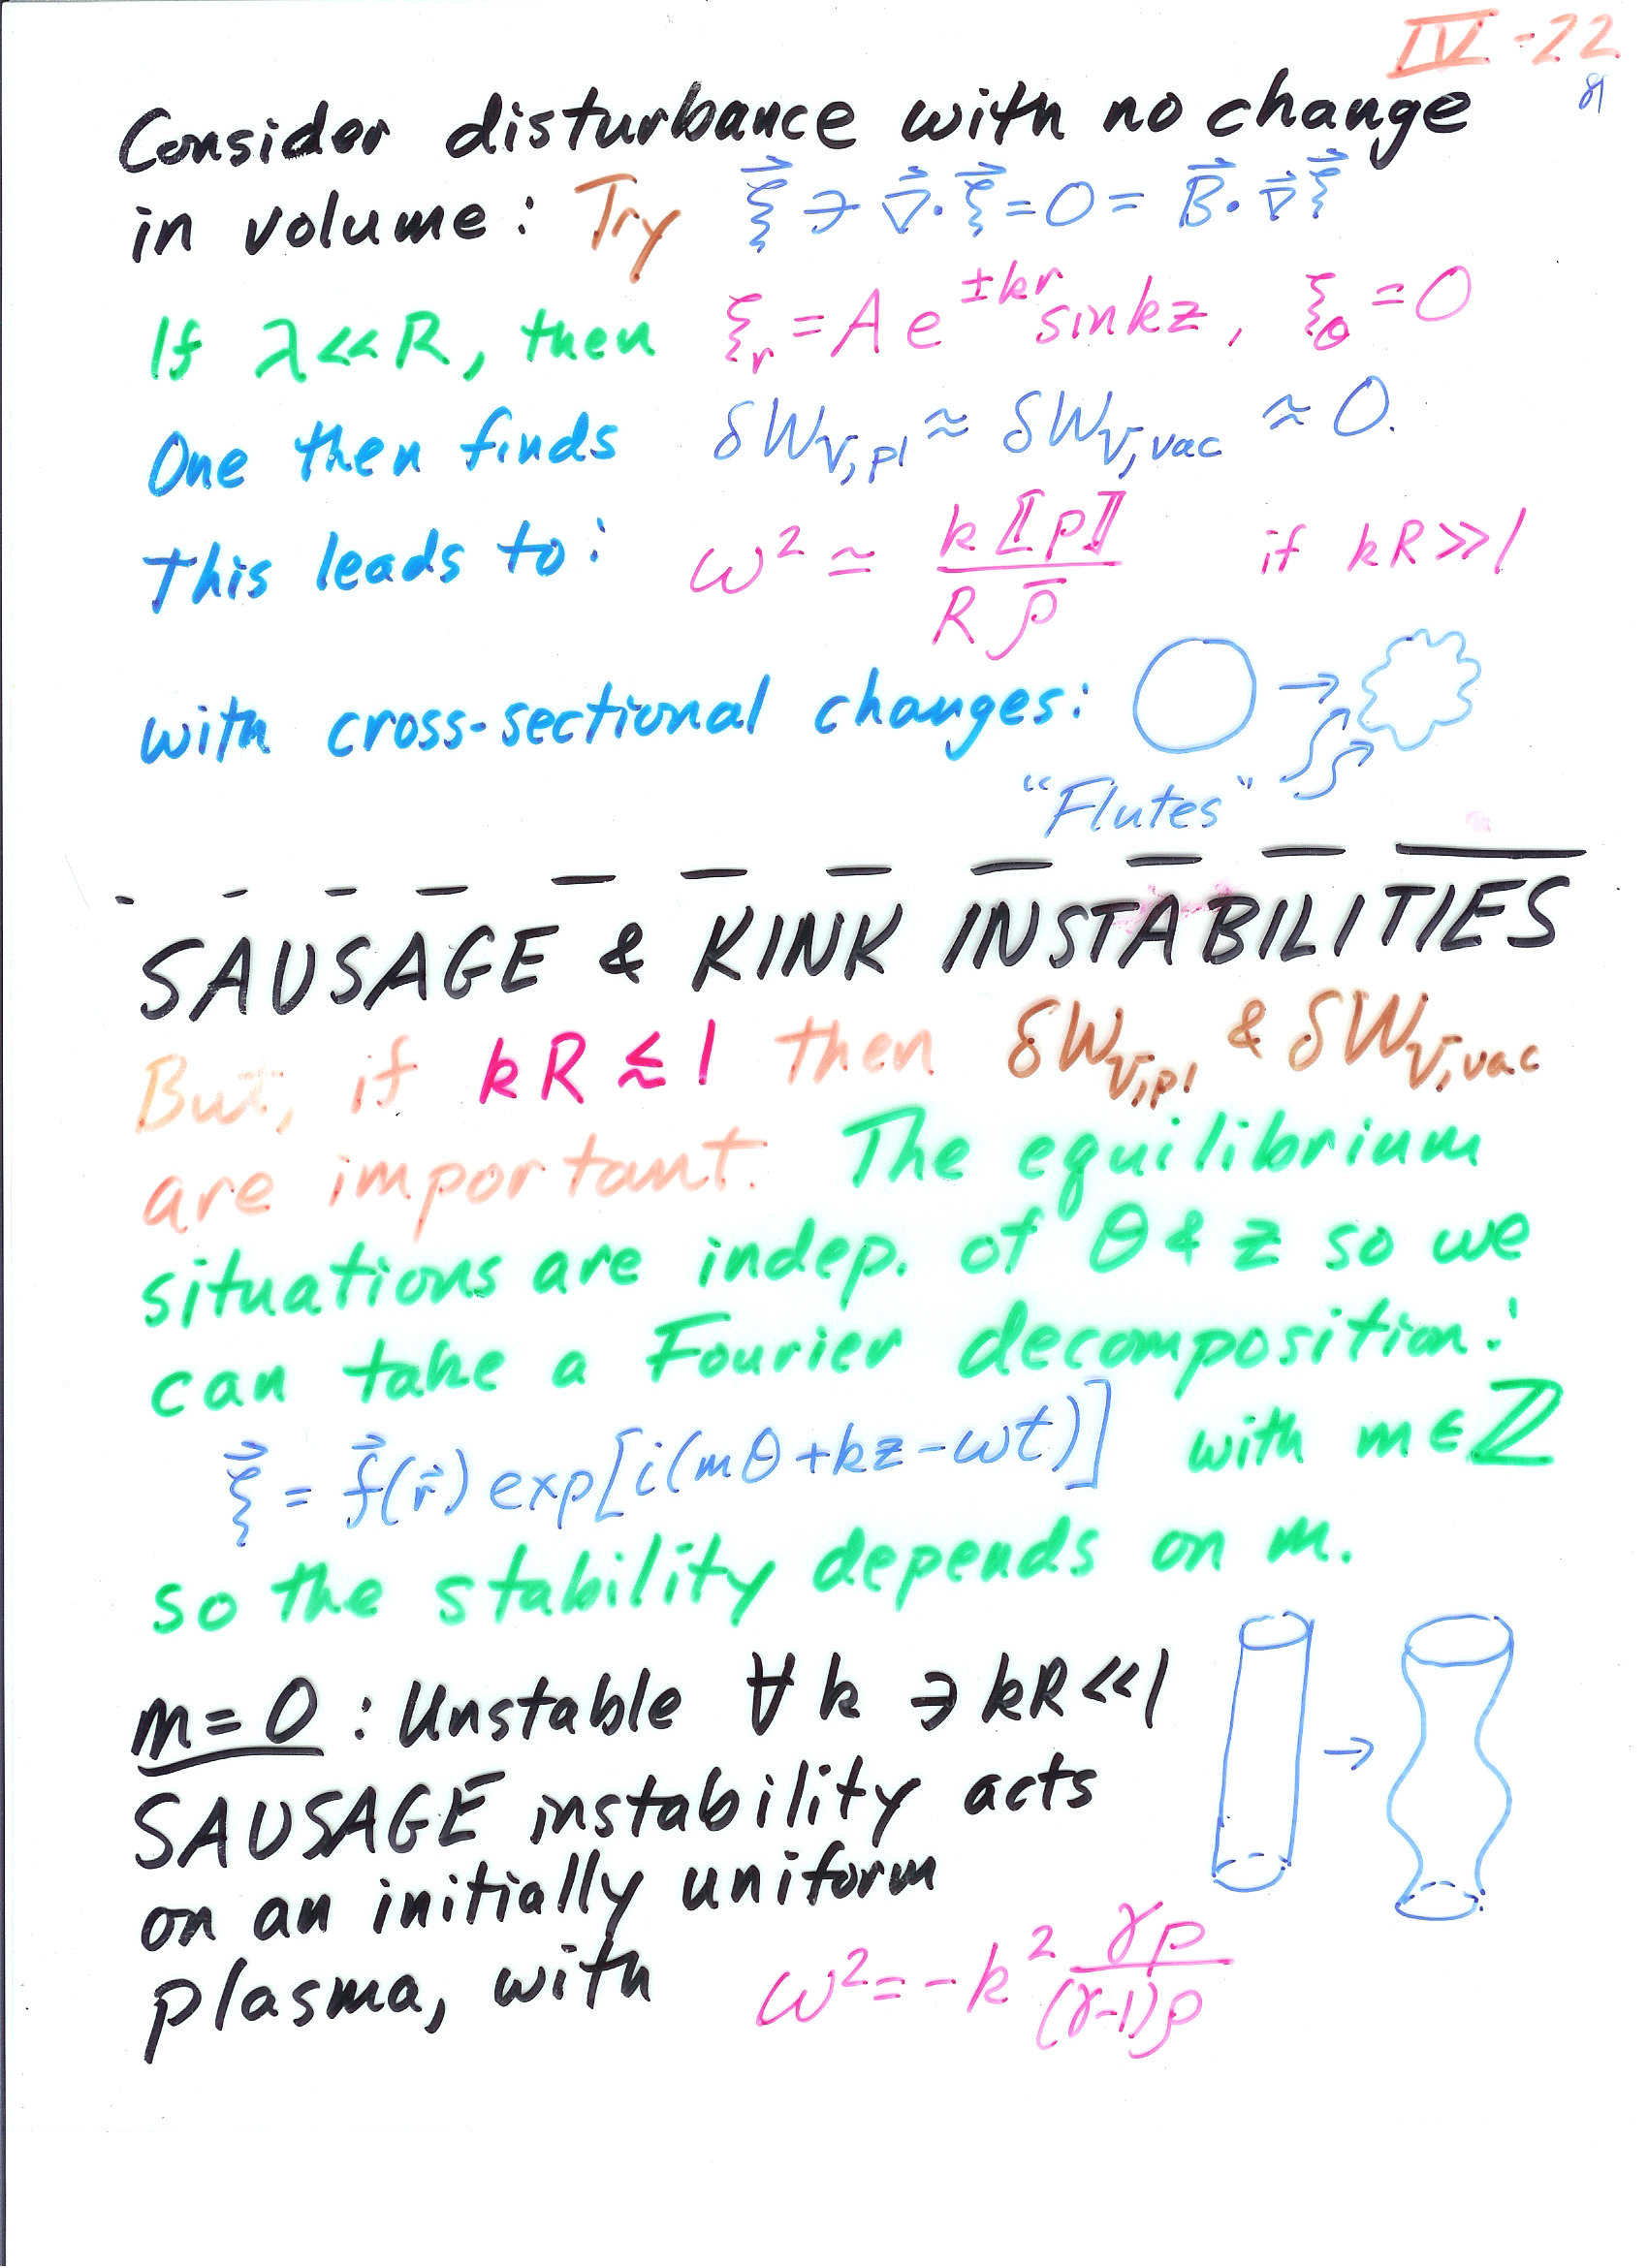 IV-22
81
Consider disturbance with no change
in volume: Try ξ⃗ ∋ ∇⃗·ξ⃗ = 0 = B⃗·∇⃗ξ⃗
If λ<<R, then ξ_r = A e^{±kr} sinkz, ξ_θ = 0
One then finds δW_{V,pl} ≈ δW_{V,vac} ≈ 0.
This leads to: ω² ≃ k⟦p⟧ / R ρ̄ if kR>>1
with cross-sectional changes:
"Flutes"
SAUSAGE & KINK INSTABILITIES
But, if kR ≲ 1 then δW_{V,pl} & δW_{V,vac}
are important. The equilibrium
situations are indep. of θ & z so we
can take a Fourier decomposition:
ξ⃗ = f⃗(r⃗) exp[i(mθ+kz-ωt)] with m ∈ ℤ
so the stability depends on m.
m=0 : Unstable ∀ k ∋ kR<<1
SAUSAGE instability acts
on an initially uniform
plasma, with ω² = -k² γp / (γ-1)ρ